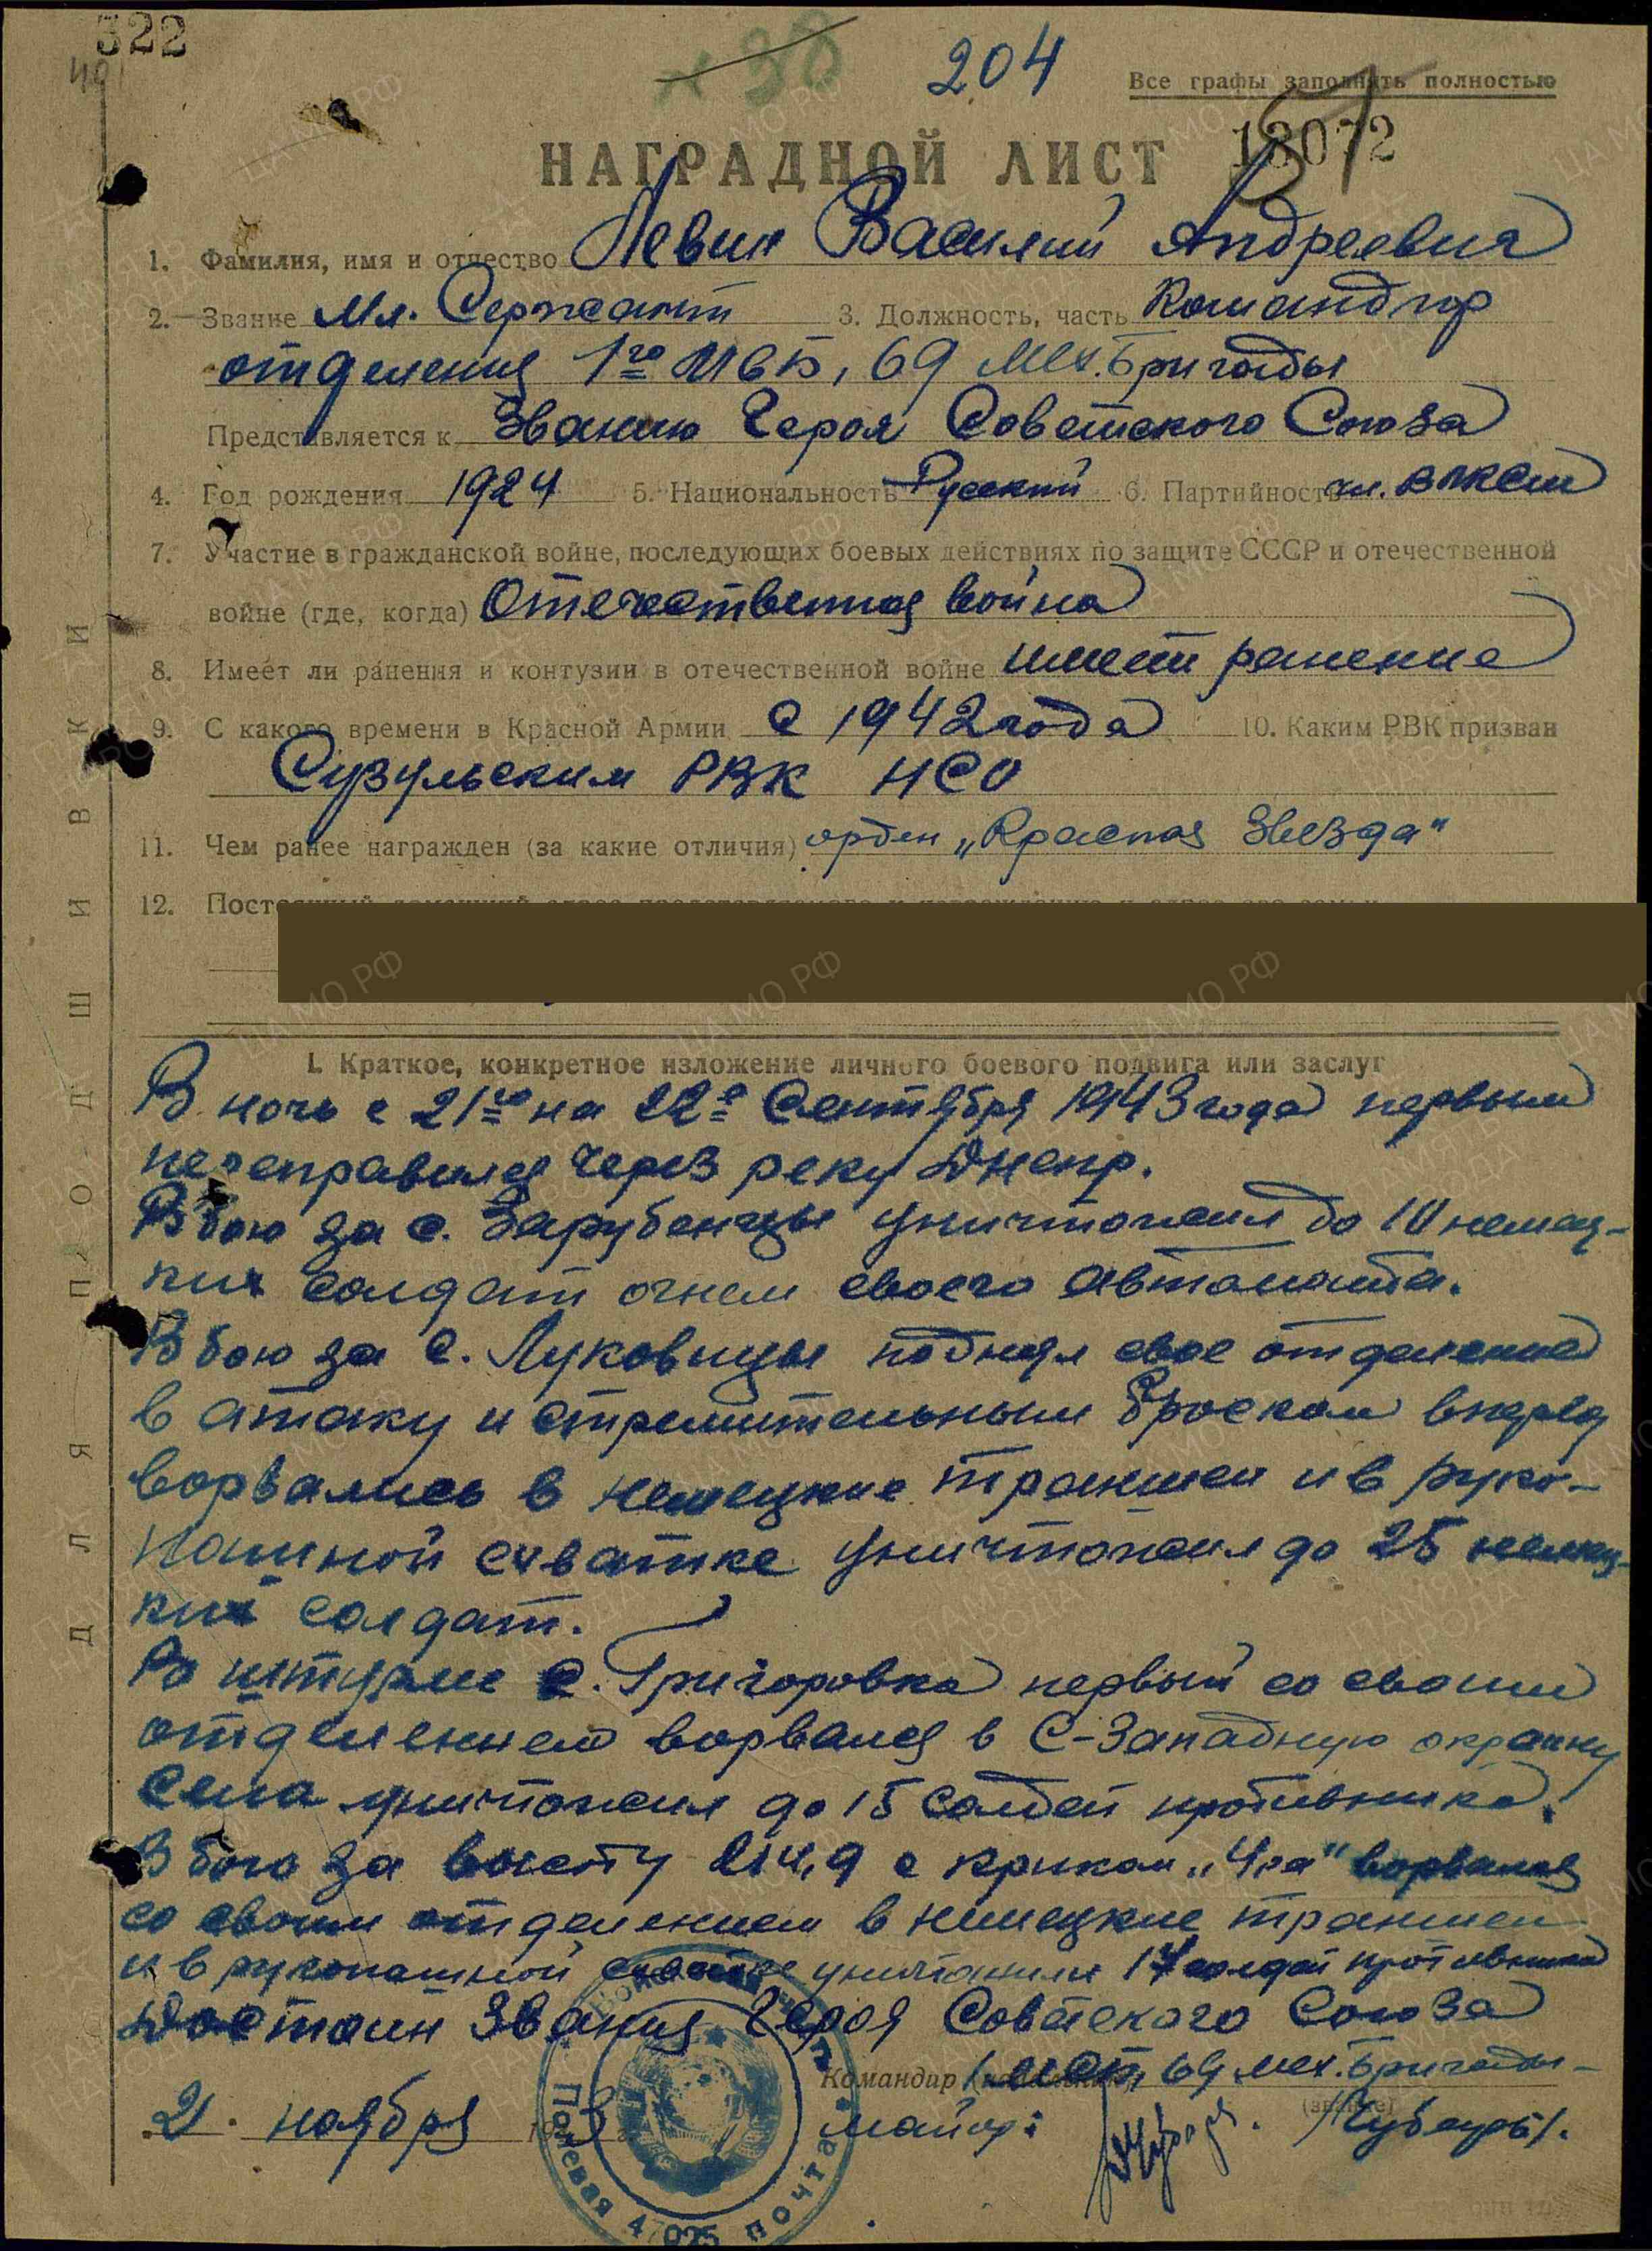 322
204
Все графы заполнять полностью
НАГРАДНОЙ ЛИСТ 18072
1. Фамилия, имя и отчество Левин Василий Андреевич
2. Звание Мл. Сержант 3. Должность, часть Командир
отделения 1го МСБ, 69 Мех. Бригады
Представляется к Званию Героя Советского Союза
4. Год рождения 1924 5. Национальность Русский 6. Партийность чл. ВЛКСМ
7. Участие в гражданской войне, последующих боевых действиях по защите СССР и отечественной
войне (где, когда) Отечественная война
8. Имеет ли ранения и контузии в отечественной войне имеет ранение
9. С какого времени в Красной Армии с 1942 года 10. Каким РВК призван
Сузунским РВК НСО
11. Чем ранее награжден (за какие отличия) орден „Красная Звезда"
12.
I. Краткое, конкретное изложение личного боевого подвига или заслуг
В ночь с 21го на 22е Сентября 1943 года первым
переправился через реку Днепр.
В бою за с. Зарубенцы уничтожил до 10 немец-
ких солдат огнем своего автомата.
В бою за с. Луковицы поднял свое отделение
в атаку и стремительным броском вперед
ворвались в немецкие траншеи и в руко-
пашной схватке уничтожил до 25 немец-
ких солдат.
Во штурме с. Григоровка первый со своим
отделением ворвался в С-Западную окраину
Села уничтожил до 15 солдат противника.
В бою за высоту 214,9 с криком „Ура" ворвался
со своим отделением в немецкие траншеи
и в рукопашной схватке уничтожили 17 солдат противника
Достоин Звания Героя Советского Союза
Командир 1 МСБ, 69 мех. Бригады-
(звание)
21. ноября 1943 г. майор: /Чубаров/.
Полевая почта 47025
ДЛЯ ПОДШИВКИ